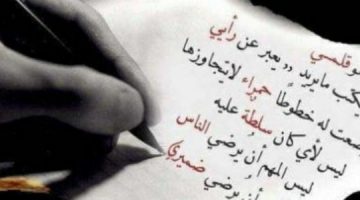 قلمي
كتب مايريد ,, يعبر عن رأيي
ضعت له خطوطاً حمراء لايتجاوزها
ليس لأي كان سلطة عليه
ليس المهم أن يرضي الناس
أن يرضي ضميري